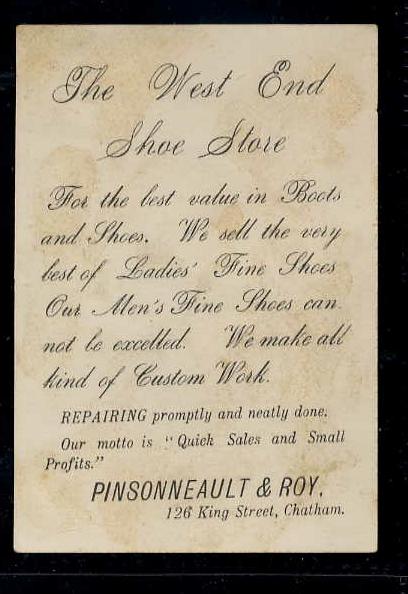 The West End
Shoe Store
For the best value in Boots
and Shoes. We sell the very
best of Ladies' Fine Shoes
Our Men's Fine Shoes can
not be excelled. We make all
kind of Custom Work.
REPAIRING promptly and neatly done.
Our motto is "Quick Sales and Small
Profits."
PINSONNEAULT & ROY,
126 King Street, Chatham.